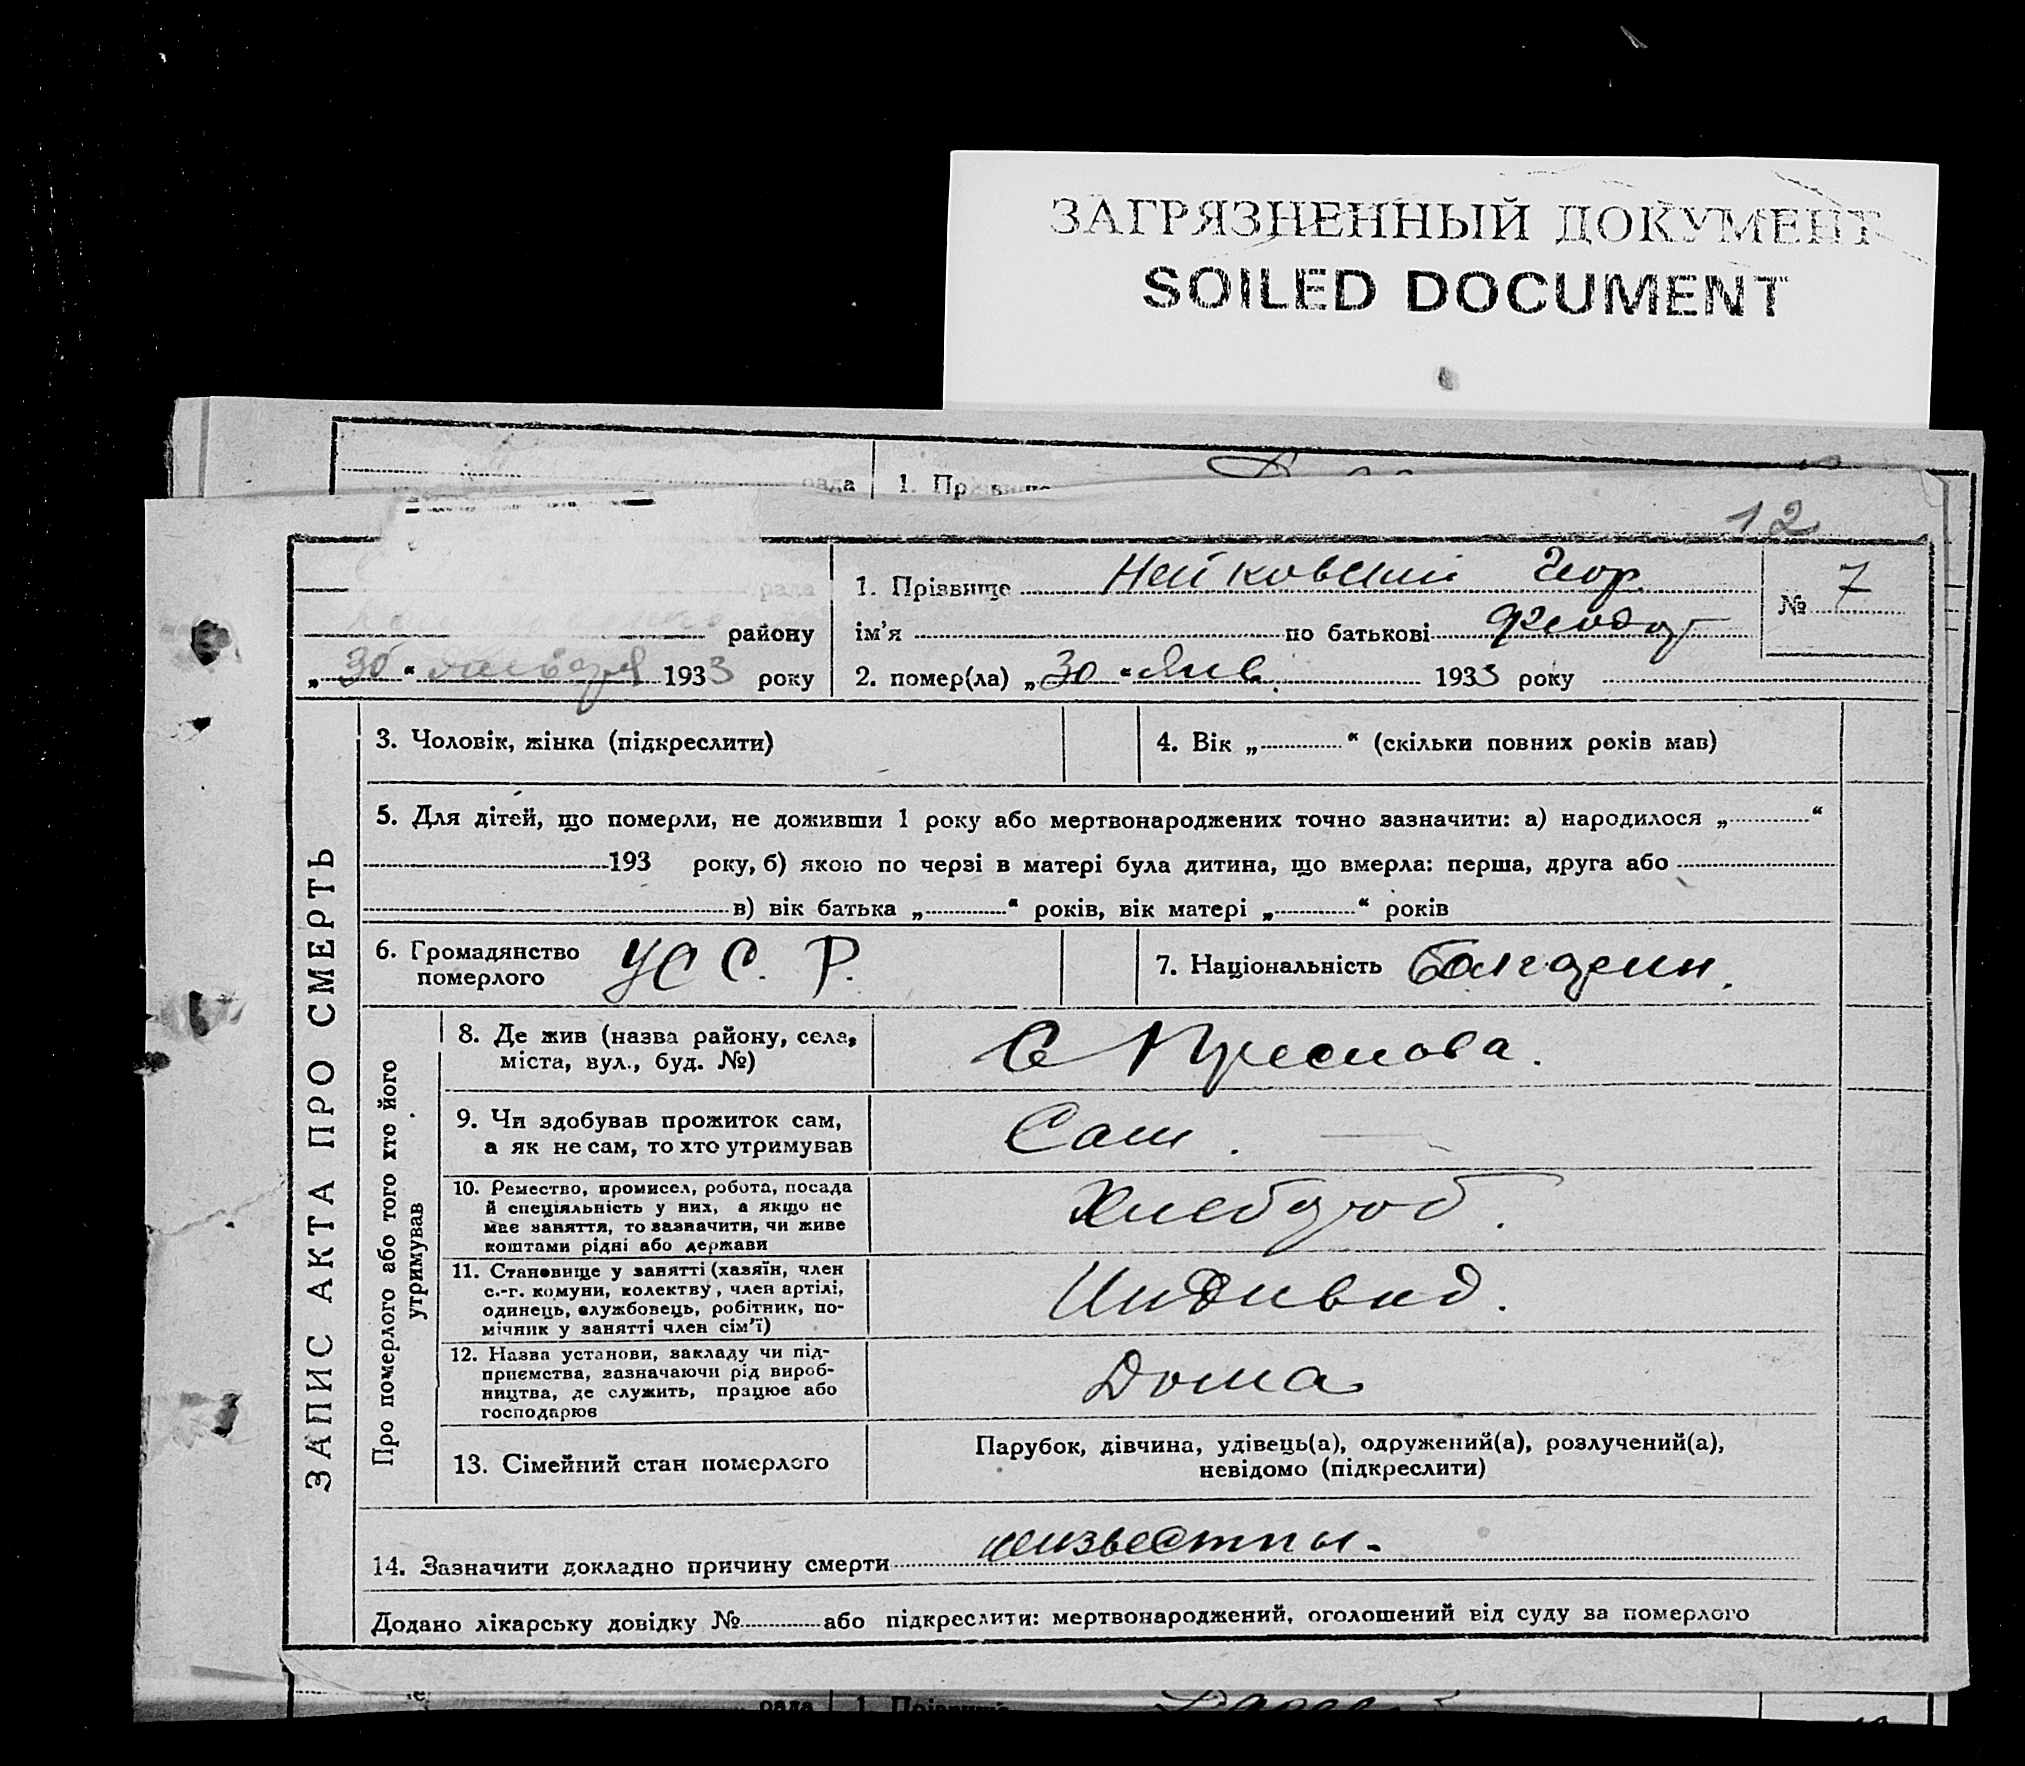 ЗАГРЯЗНЕННЫЙ ДОКУМЕНТ
SOILED DOCUMENT
рада 1. Прізвище
12
рада
1. Прізвище Нейковский Геор
№ 7
району
ім’я по батькові Феодот
„30“ января 1933 року
2. помер(ла) „30“ Янв. 1933 року
ЗАПИС АКТА ПРО СМЕРТЬ
3. Чоловік, жінка (підкреслити)
4. Вік „ “ (скільки повних років мав)
5. Для дітей, що померли, не доживши 1 року або мертвонароджених точно зазначити: а) народилося „ “
193 року, б) якою по черзі в матері була дитина, що вмерла: перша, друга або
в) вік батька „ “ років, вік матері „ “ років
6. Громадянство померлого УС С. Р.
7. Національність Болгарин.
Про померлого або того хто його утримував
8. Де жив (назва району, села,
міста, вул., буд. №)
С Преслова.
9. Чи здобував прожиток сам,
а як не сам, то хто утримував
Сам.
10. Ремество, промисел, робота, посада
й спеціяльність у них, а якщо не
має заняття, то зазначити, чи живе
коштами рідні або держави
Хлебороб.
11. Становище у занятті (хазяїн, член
с.-г. комуни, колектву, член артілі,
одинець, службовець, робітник, по-
мічник у занятті член сім’ї)
Индивид.
12. Назва установи, закладу чи під-
приємства, зазначаючи рід вироб-
ництва, де служить, працює або
господарює
Дома
13. Сімейний стан померлого
Парубок, дівчина, удівець(а), одружений(а), розлучений(а),
невідомо (підкреслити)
14. Зазначити докладно причину смерти неизвестны.
Додано лікарську довідку № або підкреслити: мертвонароджений, оголошений від суду за померлого
рада 1. Прізвище